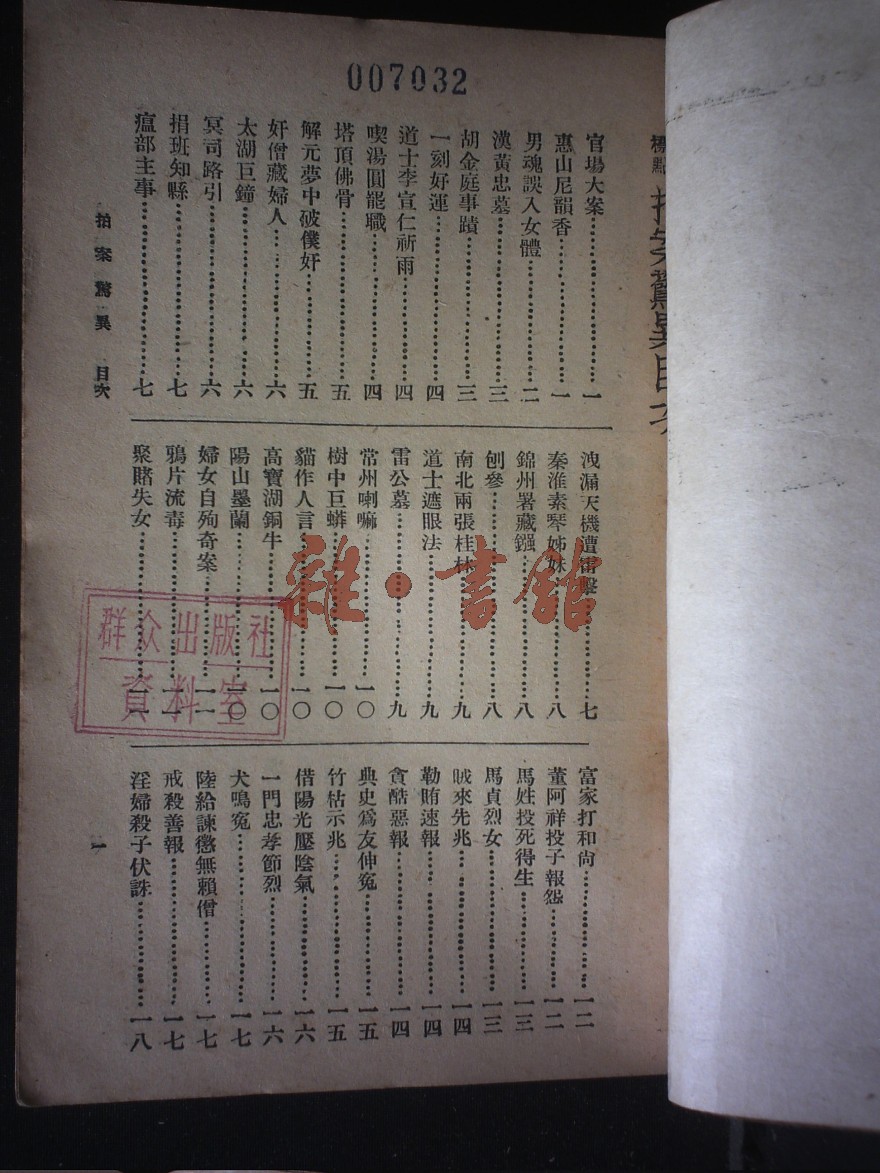 007032
標點拍案驚異目次
官場大案一
惠山尼韻香一
男魂誤入女體二
漢黃忠墓三
胡金庭事蹟三
一刻好運四
道士李宣仁祈雨四
喫湯圓罷職四
塔頂佛骨五
解元夢中破僕奸五
奸僧藏婦人六
太湖巨鐘六
冥司路引六
捐班知縣七
瘟部主事七
洩漏天機遭雷擊七
秦淮素琴姊妹八
錦州署藏鏹八
刨參八
南北兩張桂林九
道士遮眼法九
雷公墓九
常州喇嘛一〇
樹中巨蟒一〇
貓作人言一〇
高寶湖銅牛一〇
陽山墨蘭一〇
婦女自殉奇案一一
鴉片流毒一一
聚賭失女一一
富家打和尚一二
董阿祥投子報怨一二
馬姓投死得生一三
馬貞烈女一三
賊來先兆一四
勒賄速報一四
貪酷惡報一四
典史爲友伸冤一五
竹枯示兆一五
借陽光壓陰氣一六
一門忠孝節烈一六
犬鳴冤一七
陸給諫懲無賴僧一七
戒殺善報一七
淫婦殺子伏誅一八
拍案驚異 目次
一
群众出版社
資料室
雜·書館